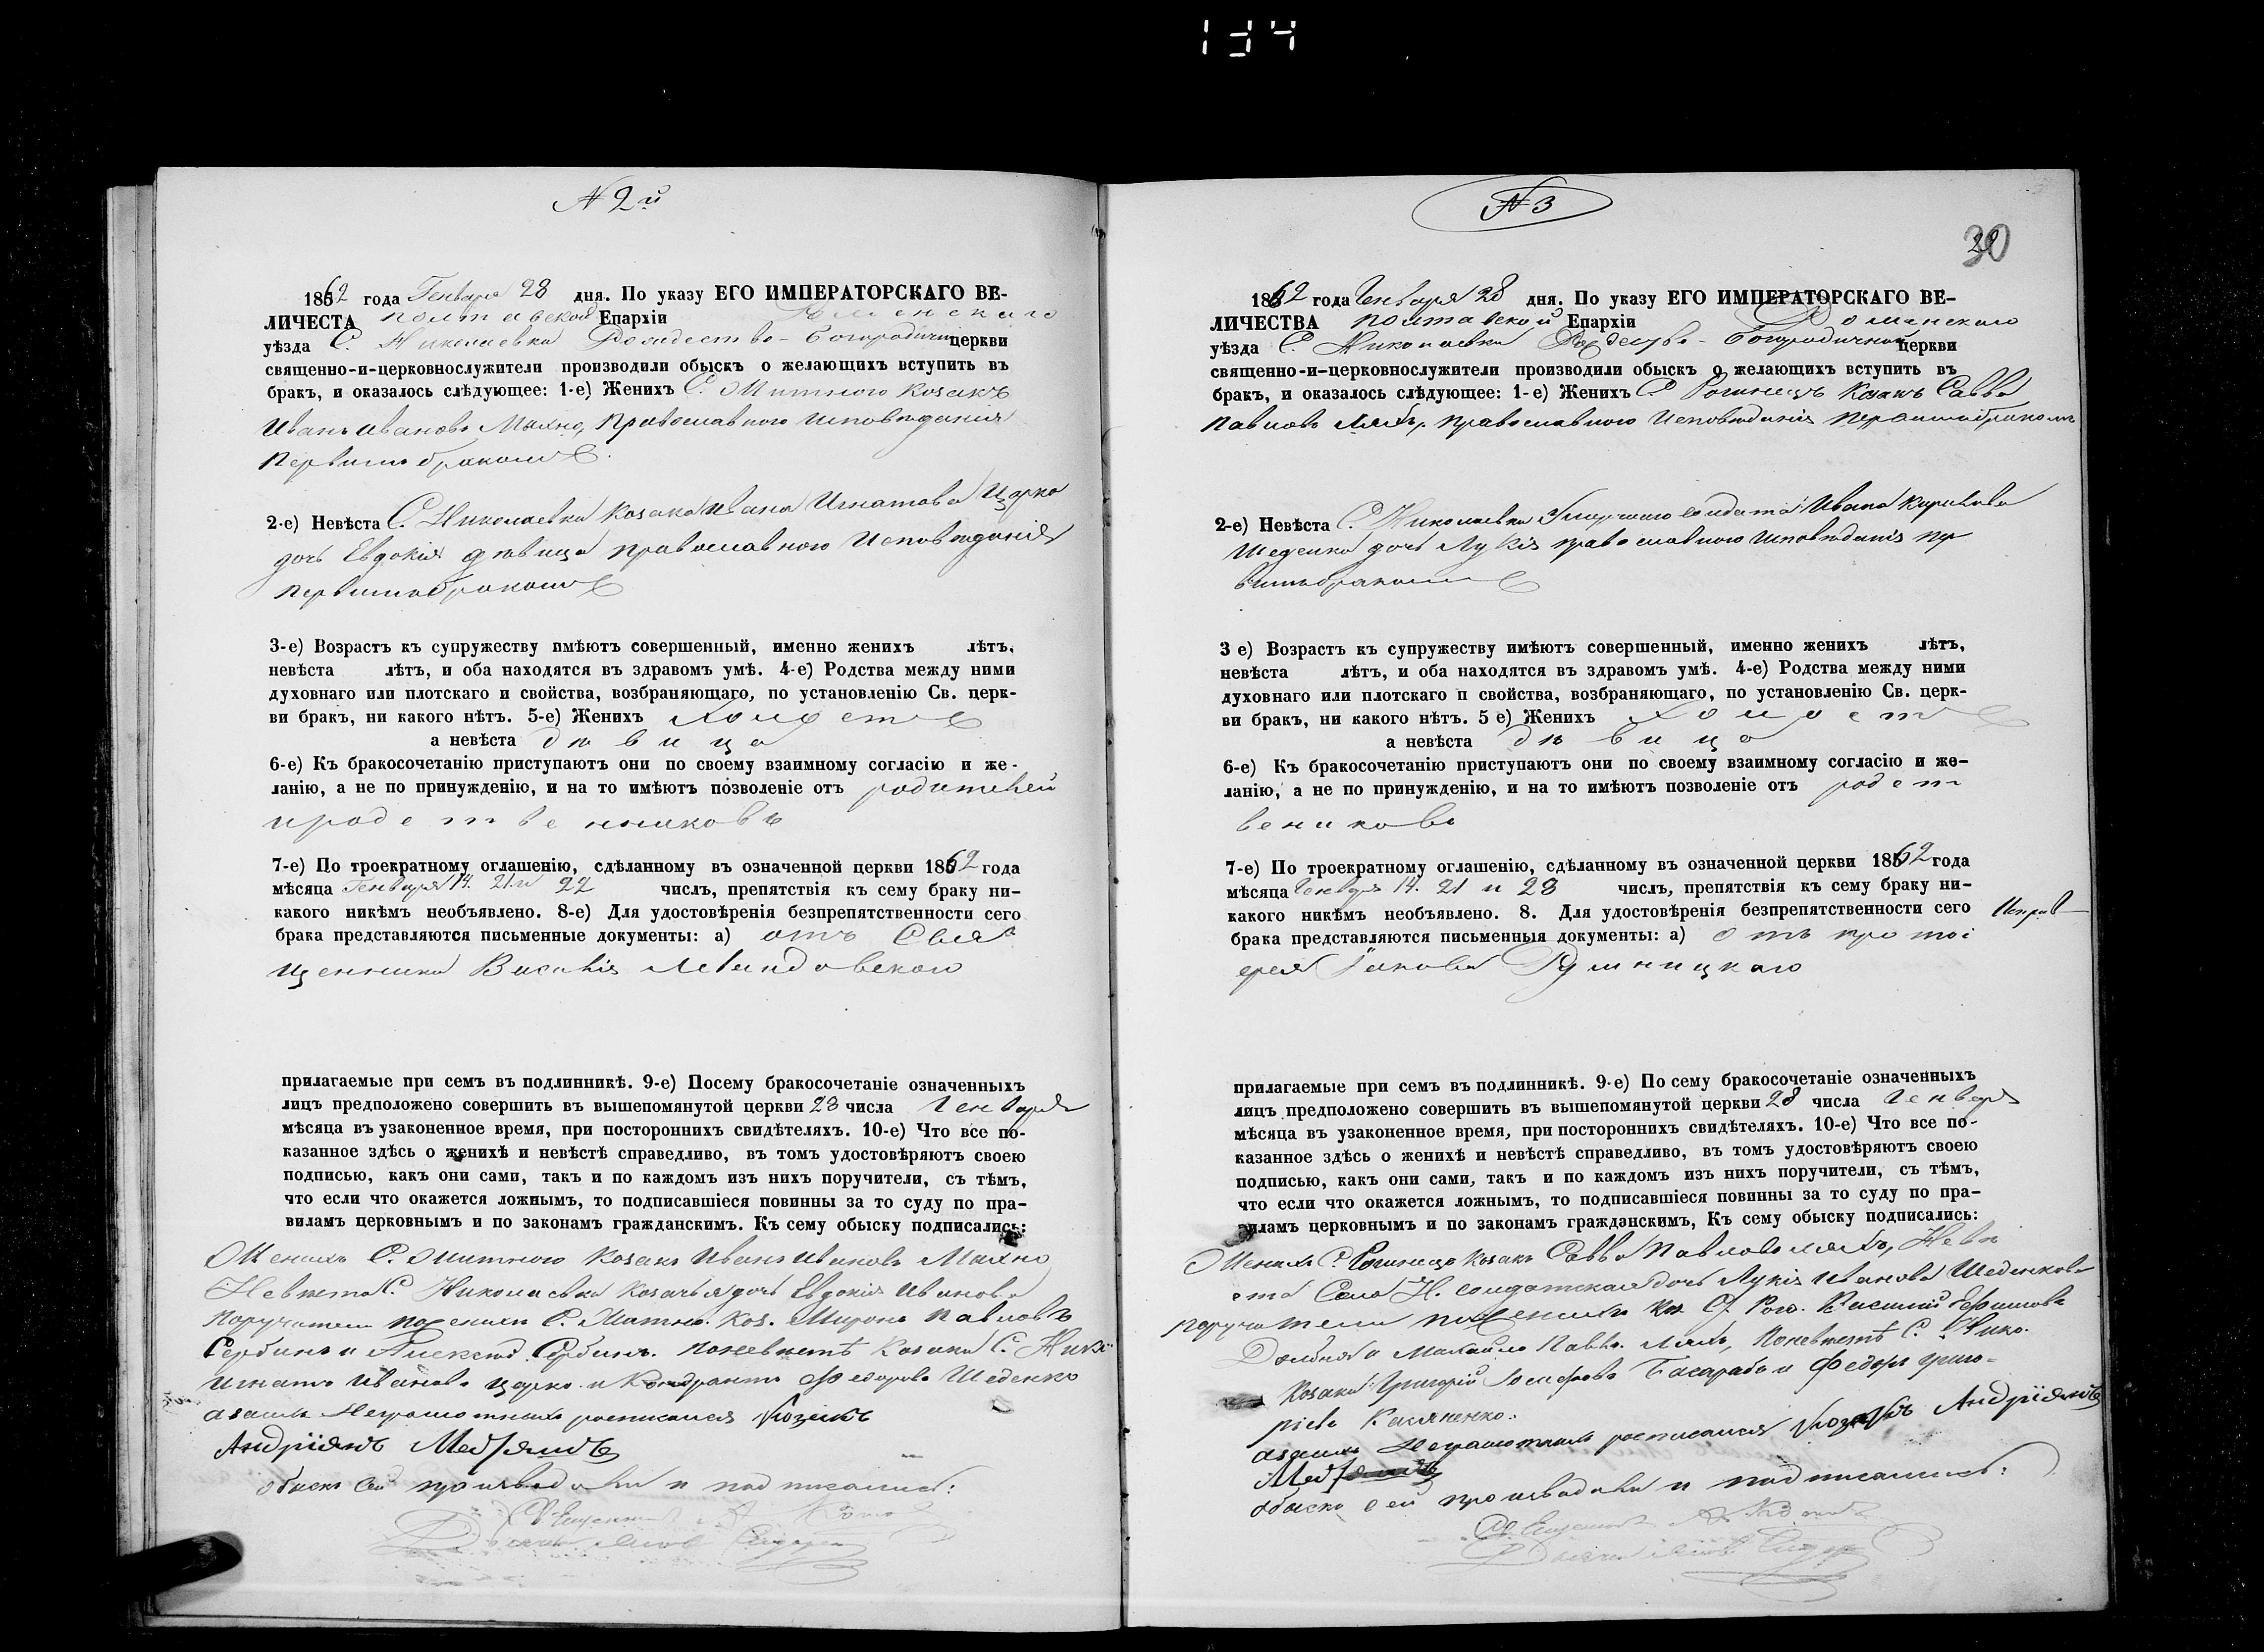 134
N 2й
1862 года Генваря 28 дня. По указу ЕГО ИМПЕРАТОРСКАГО ВЕ-
ЛИЧЕСТА полтавской Епархіи Роменскаго
уѣзда С. Николаевка Рождество-Богородичной церкви
священно-и-церковнослужители производили обыскъ о желающихъ вступить въ
бракъ, и оказалось слѣдующее: 1-е) Женихъ С. Житного козакъ
Иванъ Ивановъ Махно, православного исповѣданія
первымъ бракомъ
2-е) Невѣста С. Николаевки козака Ивана Игнатова Царко
дочь Евдокія дѣвица православного исповѣданія
первымъ бракомъ
3-е) Возрастъ къ супружеству имѣютъ совершенный, именно женихъ лѣтъ,
невѣста лѣтъ, и оба находятся въ здравомъ умѣ. 4-е) Родства между ними
духовнаго или плотскаго и свойства, возбраняющаго, по установленію Св. церк-
ви бракъ, ни какого нѣтъ. 5-е) Женихъ холостъ
а невѣста дѣвица
6-е) Къ бракосочетанію приступаютъ они по своему взаимному согласію и же-
ланію, а не по принужденію, и на то имѣютъ позволеніе отъ родителей
и родственниковъ
7-е) По троекратному оглашенію, сдѣланному въ означенной церкви 1862 года
мѣсяца Генваря 14. 21 и 22 числъ, препятствія къ сему браку ни-
какого никѣмъ необъявлено. 8-е) Для удостовѣренія безпрепятственности сего
брака представляются письменные документы: а) отъ Свя
щенника Василія
прилагаемые при семъ въ подлинникѣ. 9-е) Посему бракосочетаніе означенныхъ
лицъ предположено совершить въ вышепомянутой церкви 28 числа Генваря
мѣсяца въ узаконенное время, при постороннихъ свидѣтеляхъ. 10-е) Что все по-
казанное здѣсь о женихѣ и невѣстѣ справедливо, въ томъ удостовѣряютъ своею
подписью, какъ они сами, такъ и по каждомъ изъ нихъ поручители, съ тѣмъ,
что если что окажется ложнымъ, то подписавшіеся повинны за то суду по пра-
виламъ церковнымъ и по законамъ гражданскимъ. Къ сему обыску подписались:
Женихъ С. Житного Козакъ Иванъ Ивановъ Махно
Невѣста С. Николаевки козачья дочь Евдокія Иванова
Поручители по женихѣ С. Житно. Коз. Миронъ Павловъ
Сербинъ и Александ. Сербинъ. по невѣстѣ Козаки С. Ник.
Игнатъ Ивановъ Царко и Кондратъ Федоровъ Шеденко
а за ихъ неграмотныхъ росписался Козакъ
Андріянъ
обыскъ сей производили и подписались:
N 3
30
1862 года Генваря 28 дня. По указу ЕГО ИМПЕРАТОРСКАГО ВЕ-
ЛИЧЕСТВА полтавской Епархіи Роменскаго
уѣзда С. Николаевки Рождество-Богородичной церкви
священно-и-церковнослужители производили обыскъ о желающихъ вступить въ
бракъ, и оказалось слѣдующее: 1-е) Женихъ С. Рогинецъ Козакъ Савва
Павловъ Ляхъ, православного исповѣданія первымъ бракомъ
2-е) Невѣста С. Николаевки Умершого солдата Ивана Кирилова
Шеденка дочь Лукія православного исповѣданія пер
вымъ бракомъ
3 е) Возрастъ къ супружеству имѣютъ совершенный, именно женихъ лѣтъ,
невѣста лѣтъ, и оба находятся въ здравомъ умѣ. 4-е) Родства между ними
духовнаго или плотскаго и свойства, возбраняющаго, по установленію Св. церк-
ви бракъ, ни какого нѣтъ. 5 е) Женихъ холостъ
а невѣста дѣвица
6-е) Къ бракосочетанію приступаютъ они по своему взаимному согласію и же-
ланію, а не по принужденію, и на то имѣютъ позволеніе отъ родст
вениковъ
7-е) По троекратному оглашенію, сдѣланному въ означенной церкви 1862 года
мѣсяца Генваря 14. 21 и 28 числъ, препятствія къ сему браку ни-
какого никѣмъ необъявлено. 8. Для удостовѣренія безпрепятственности сего
брака представляются письменныя документы: а) отъ протоі
ерея Іакова
прилагаемые при семъ въ подлинникѣ. 9-е) По сему бракосочетаніе означенныхъ
лицъ предположено совершить въ вышепомянутой церкви 28 числа Генваря
мѣсяца въ узаконенное время, при постороннихъ свидѣтеляхъ. 10-е) Что все по-
казанное здѣсь о женихѣ и невѣстѣ справедливо, въ томъ удостовѣряютъ своею
подписью, какъ они сами, такъ и по каждомъ изъ нихъ поручители, съ тѣмъ,
что если что окажется ложнымъ, то подписавшіеся повинны за то суду по пра-
виламъ церковнымъ и по законамъ гражданскимъ, Къ сему обыску подписались:
Женихъ С. Рогинецъ Козакъ Савва Павловъ Ляхъ, Невѣ
ста Села Н. солдатская дочь Лукія Иванова Шеденкова
поручители по женихѣ Коз. С. Рог. Василій Ефимовъ
Михаилъ Павло. Ляхъ, по невѣстѣ С. Нико.
Козаки Григорій Іосифовъ Басарабъ и Федоръ Григо-
ріевъ
а за ихъ неграмотныхъ росписался Козакъ Андріянъ
обыскъ сей производили и подписались: